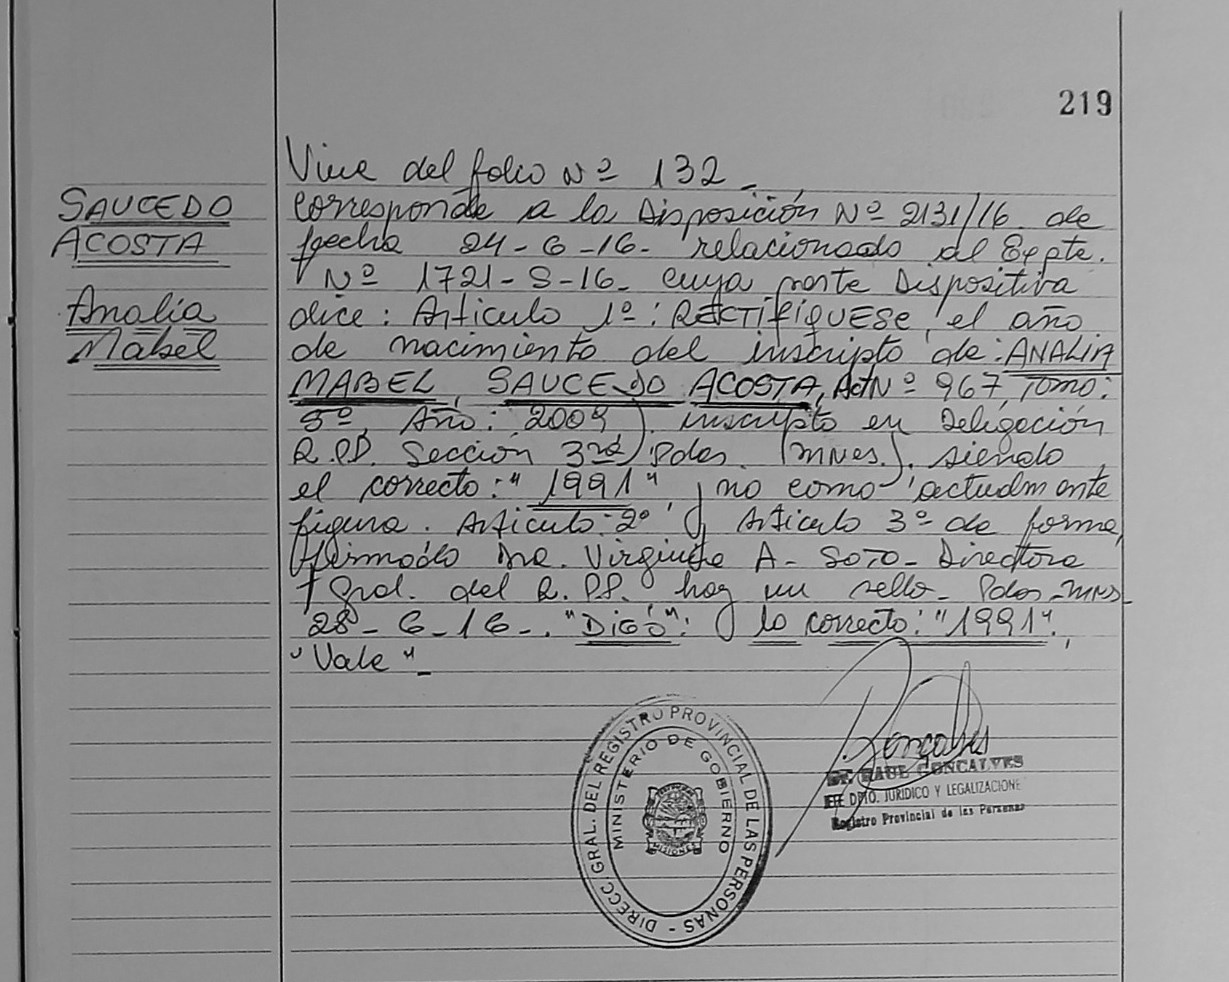 219
SAUCEDO
ACOSTA
Analia
Mabel
Vine del folio Nº 132_
corresponde a la Disposición Nº 2131/16 de
fecha 24-6-16- relacionado al Expte.
Nº 1721-S-16- cuya parte Dispositiva
dice: Artículo 1º: RECTIFIQUESE, el año
de nacimiento del inscripto de: ANALIA
MABEL SAUCEDO ACOSTA, Act Nº 967, Tomo:
5º, Año: 2009, inscripto en Delegación
R.PP. Sección 3ra, Pdas. (mnes.), siendo
el correcto: "1991", y no como actualmente
figura. Artículo: 2º y Artículo 3º de forma,
firmado Dra. Virginia A- SOTO- Directora
Gral. del R.PP. hay un sello- Pdas-mns-
28-6-16-. "Digo": y lo correcto: "1991".,
"Vale"_
DIRECC. GRAL. DEL REGISTRO PROVINCIAL DE LAS PERSONAS -
MINISTERIO DE GOBIERNO
MISIONES
Goncalves
Dr. RAUL GONCALVES
JEFE DPTO. JURIDICO Y LEGALIZACIONE
Registro Provincial de las Personas